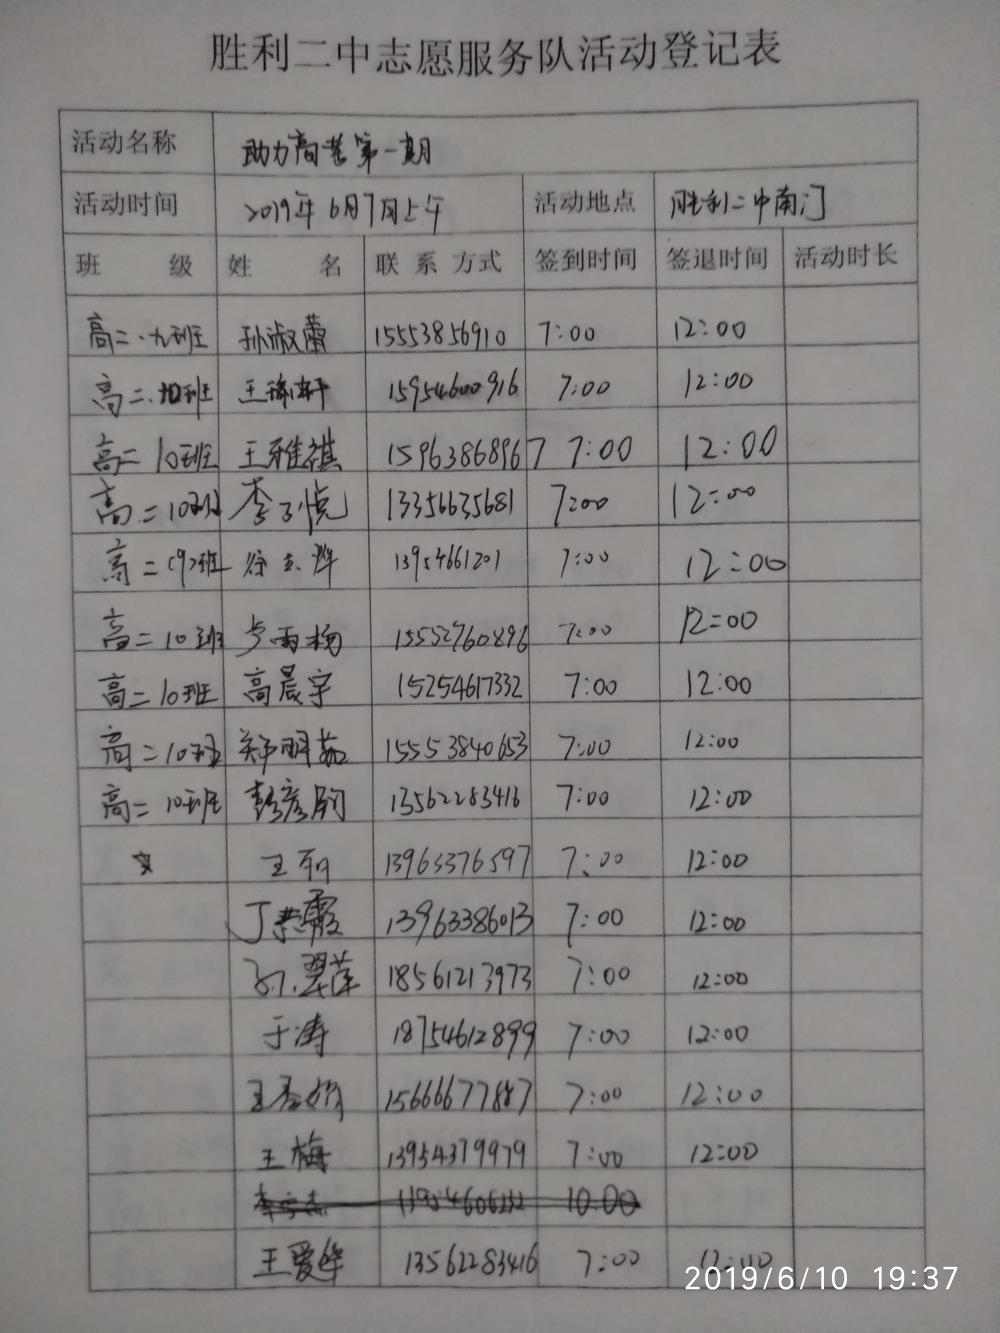 胜利二中志愿服务队活动登记表
活动名称 助力高考第一期
活动时间 2019年6月7日上午 活动地点 胜利二中南门
班 级 姓 名 联系方式 签到时间 签退时间 活动时长
高二.九班 孙淑蕾 15553856910 7:00 12:00
高二.10班 15954600916 7:00 12:00
高二 10班 王雅祺 15963868967 7:00 12:00
高二10班 李子悦 13356635681 7:00 12:00
高二(9)班 13954661201 7:00 12:00
高二10班 卢雨杨 15552760896 7:00 12:00
高二10班 高晨宇 15254617332 7:00 12:00
高二10班 郑明茹 15553840653 7:00 12:00
高二 10班 彭彦钧 13562283416 7:00 12:00
王列 13963376597 7:00 12:00
丁燕霞 13963386013 7:00 12:00
孙翠萍 18561213973 7:00 12:00
于涛 18754612899 7:00 12:00
15666677887 7:00 12:00
王梅 13954379979 7:00 12:00
10:00
王爱华 13562283416 7:00 12:00
2019/6/10 19:37